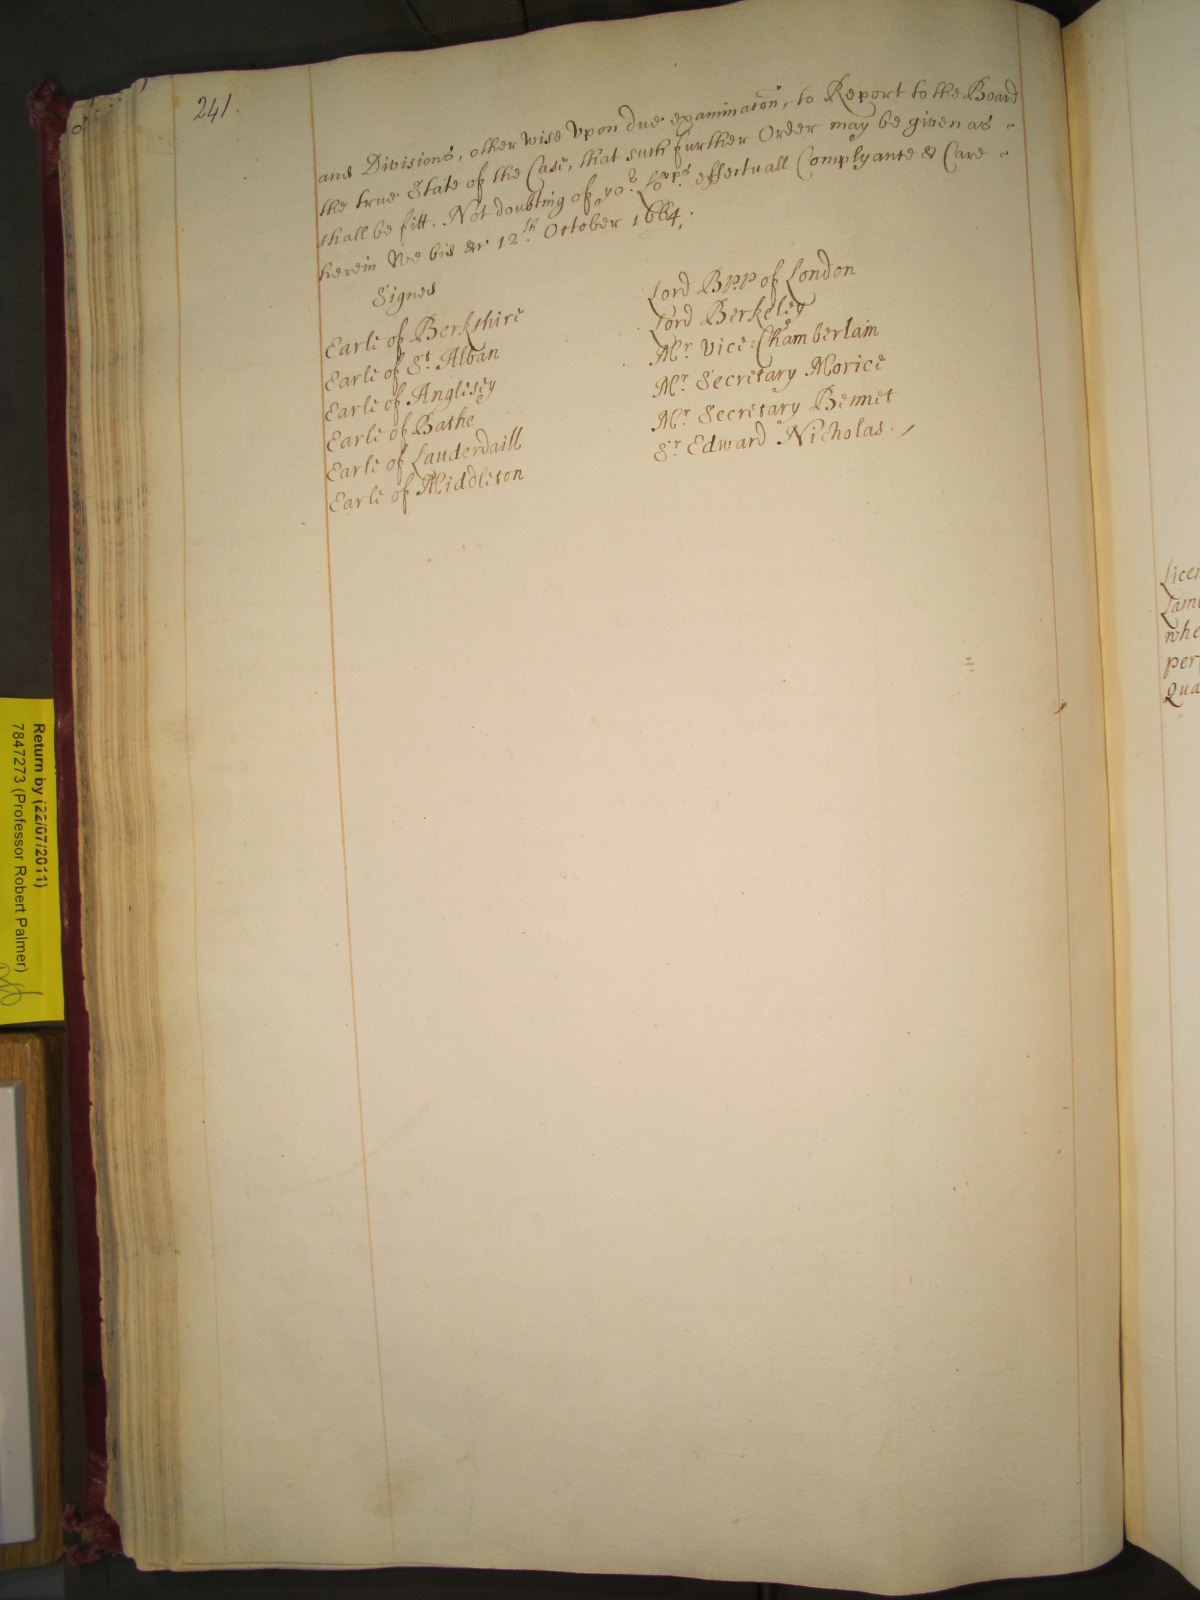 241.
and Divisions, otherwise Upon due examinacõn, to Report to the Board
the true State of the Case, that such further Order may be given as
shall be fitt. Not doubting of yoʳ Loᵖᵖˢ effectuall Complyance & Care
herein We bid &c 12ᵗʰ October 1664.
Signed
Earle of Berkshire
Earle of Sᵗ Alban
Earle of Anglisey
Earle of Bathe
Earle of Lauderdaill
Earle of Middleton
Lord Bpp of London
Lord Berkeley
Mʳ Vice:Chamberlain
Mʳ Secretary Morice
Mʳ Secretary Bennet
Sʳ Edward Nicholas.
Return by (22/07/2011)
7847273 (Professor Robert Palmer)